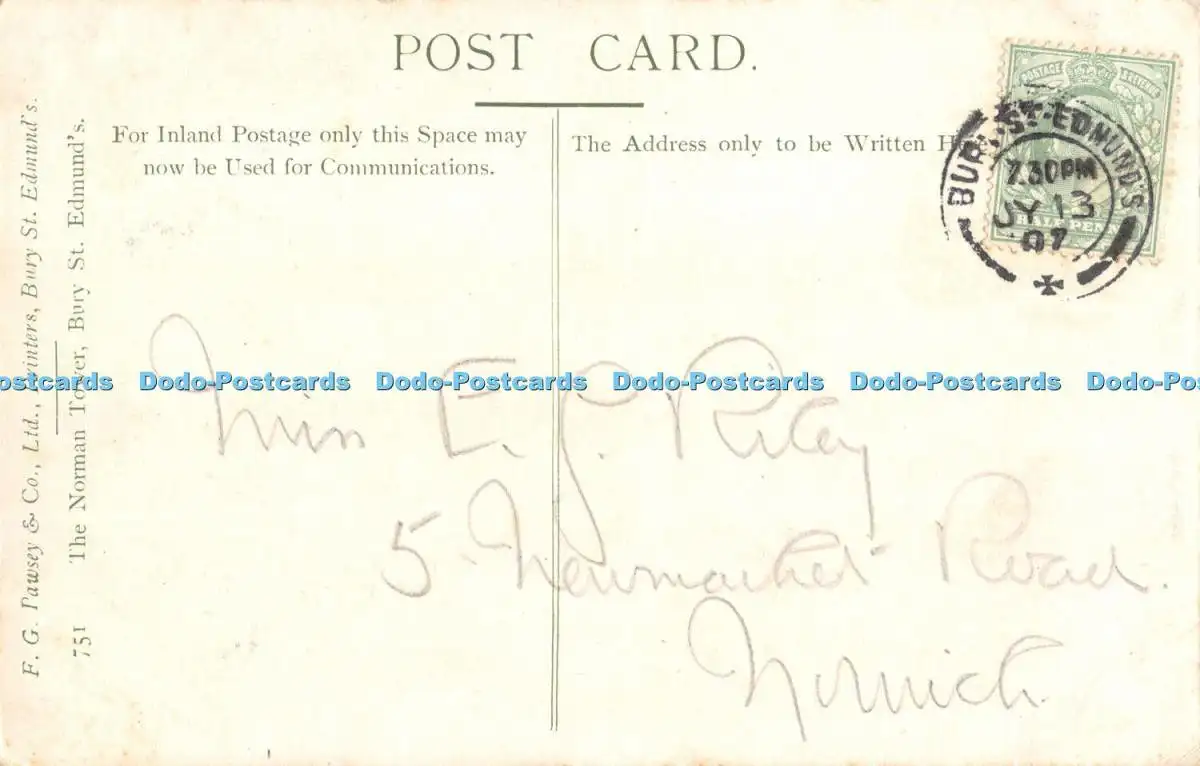 POST CARD.
For Inland Postage only this Space may
now be Used for Communications.
The Address only to be Written Here.
POSTAGE REVENUE
HALF PENNY
BURY ST. EDMUNDS
7.30PM
JY 13
07
Miss E. J. Riley
5 Newmarket Road.
Norwich
F. G. Pawsey & Co., Ltd., Printers, Bury St. Edmund's.
751 The Norman Tower, Bury St. Edmund's.
Dodo-Postcards Dodo-Postcards Dodo-Postcards Dodo-Postcards